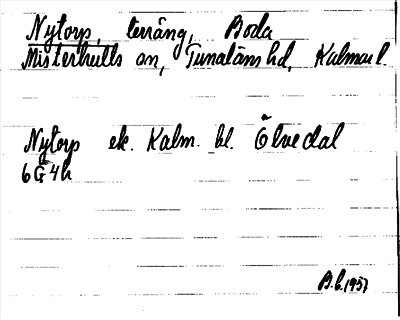 Nytorp, terräng, Boda
Misterhults sn, Tunaläns hd, Kalmar l.
Nytorp ek. Kalm. bl. Ölvedal
6G4h
B.G. 1957